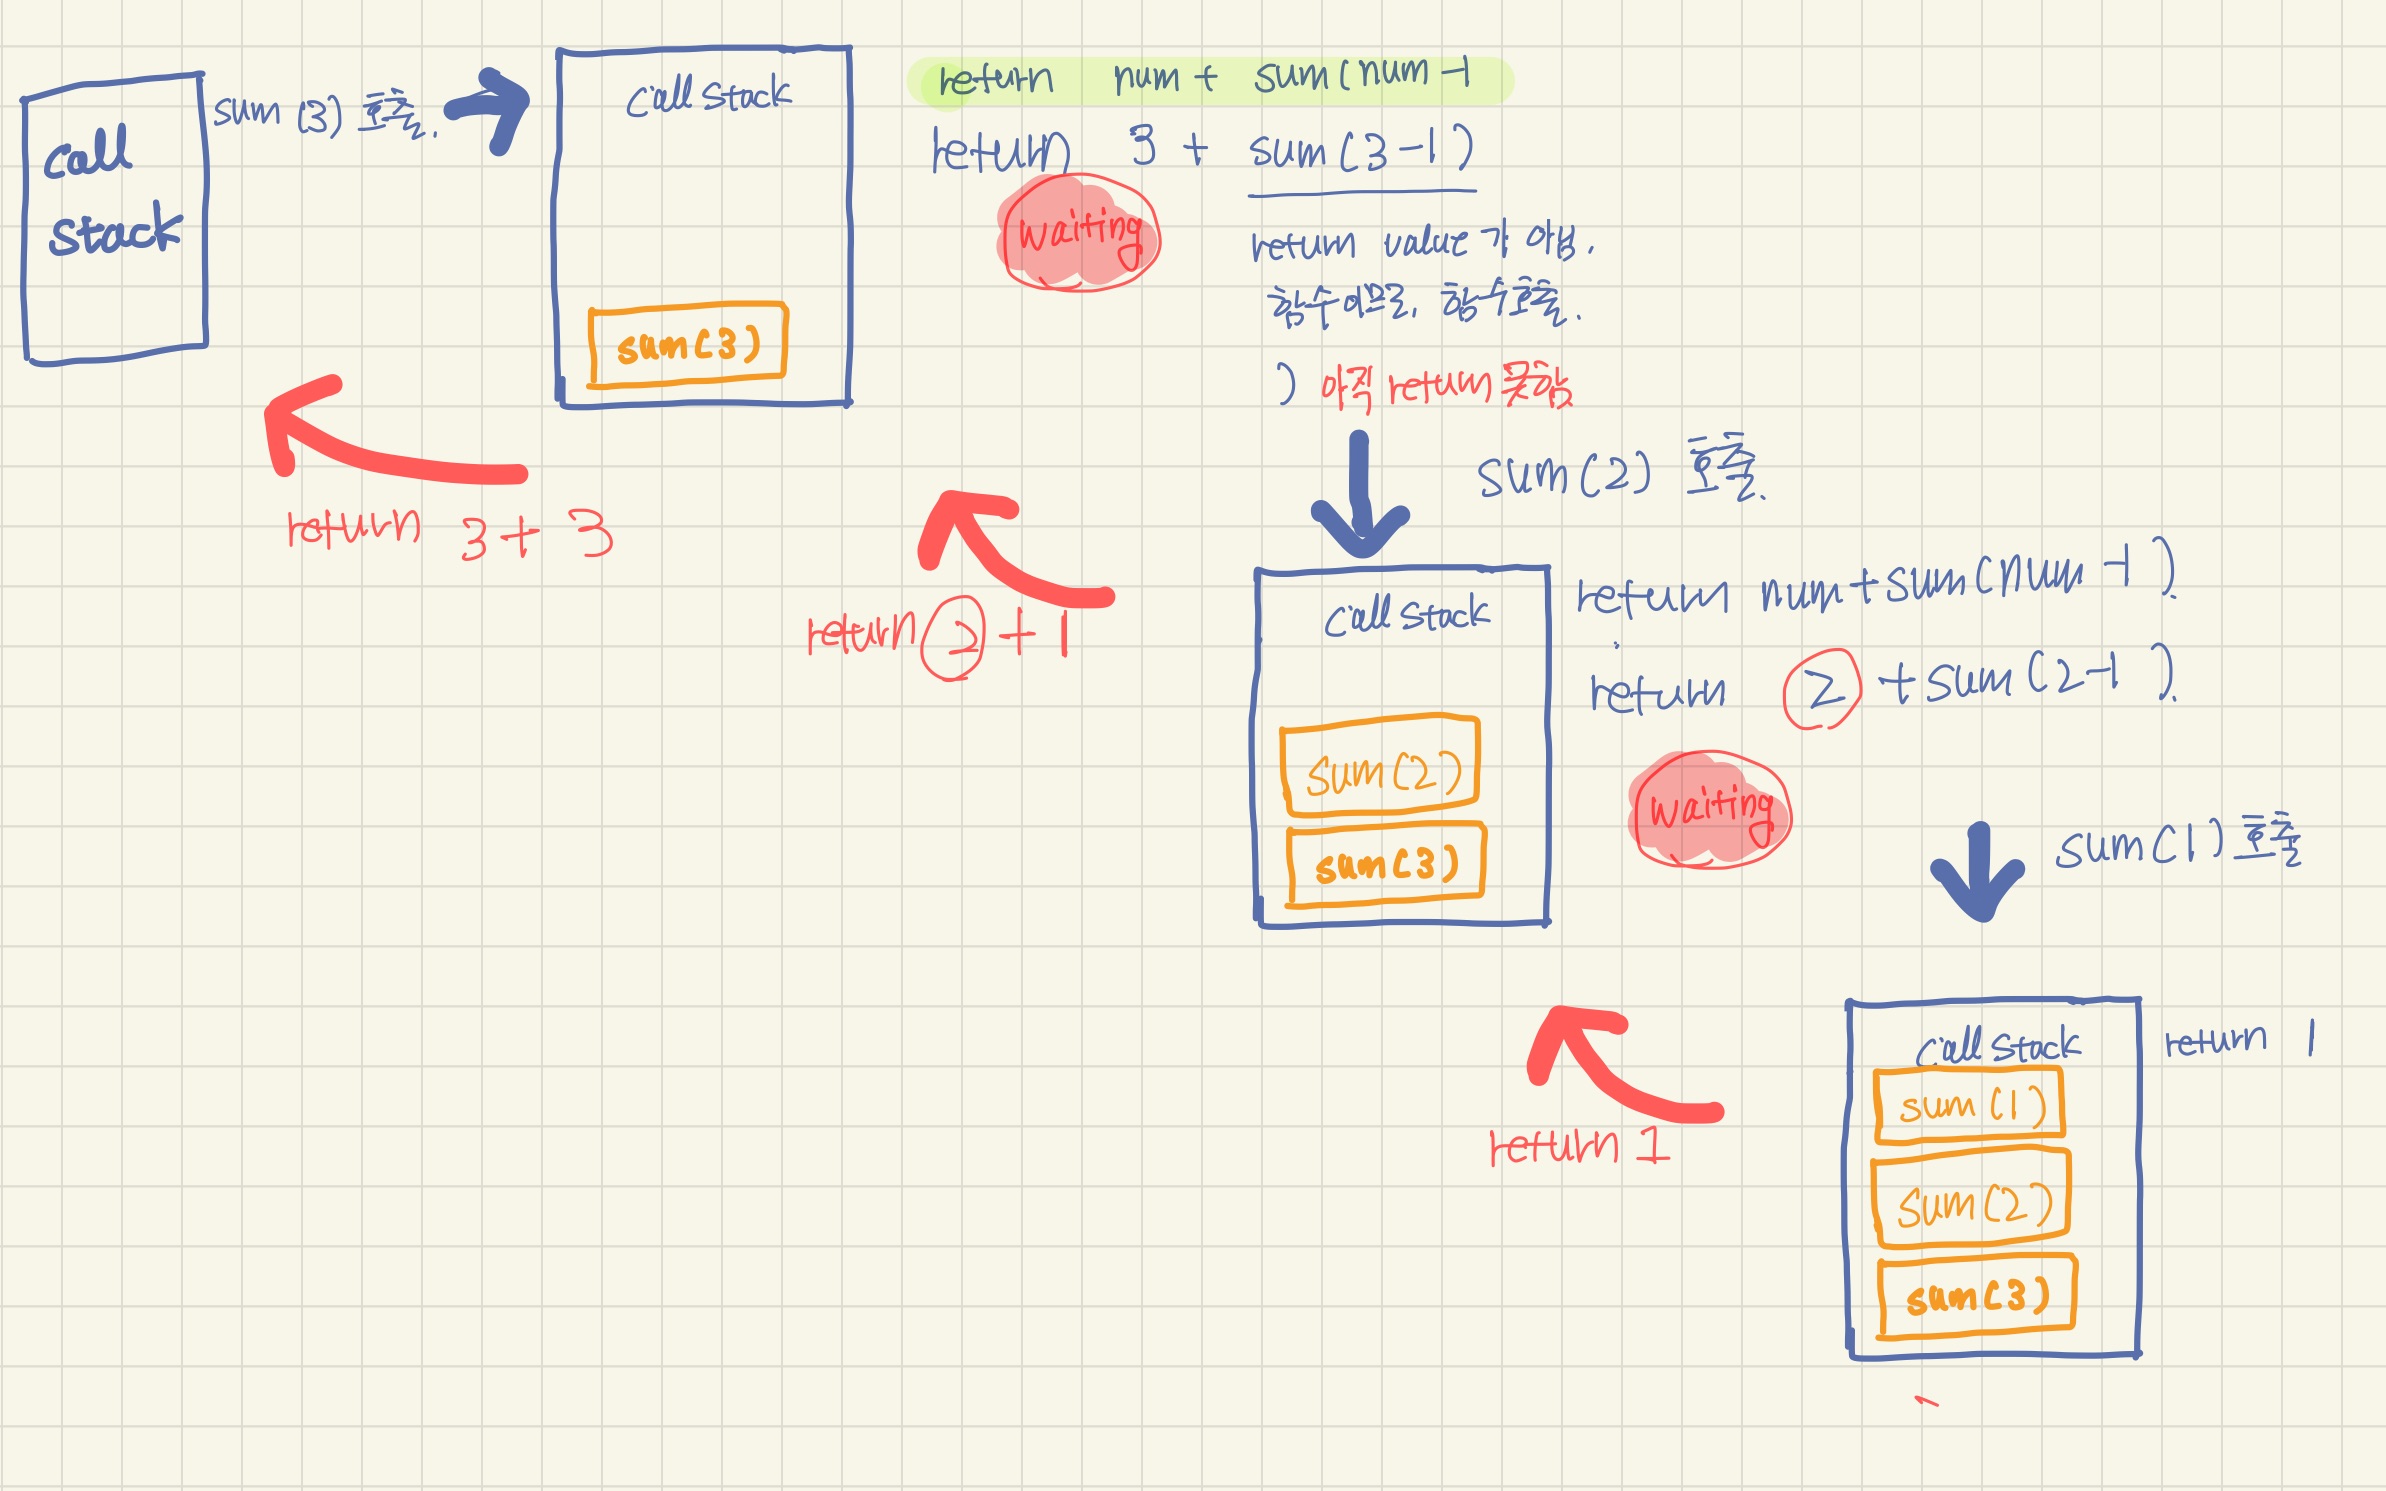 call
stack
sum (3) 호출.
call stack
sum(3)
return num + sum(num-1
return 3 + sum(3-1)
waiting
return value가 아님.
함수이므로, 함수호출.
) 아직 return 못함
sum(2) 호출.
return 3+3
return 2 + 1
call stack
sum(2)
sum(3)
return num+sum(num-1).
return 2 +sum(2-1).
waiting
sum(1) 호출
return 1
call stack
sum (1)
sum(2)
sum(3)
return 1